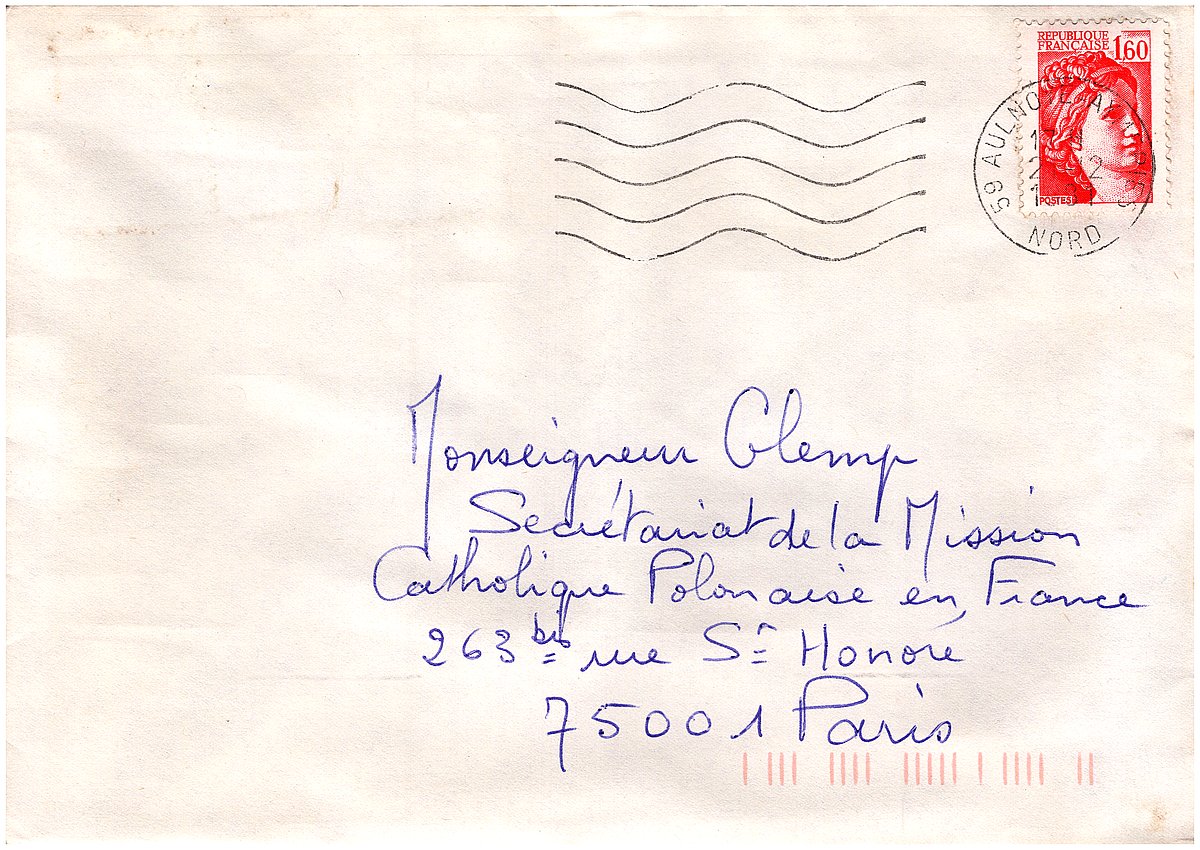 REPUBLIQUE
FRANÇAISE 1,60
POSTES
59 AULNOYE-AYMERIES
NORD
Monseigneur Glemp
Secrétariat de la Mission
Catholique Polonaise en France
263 bis rue St Honoré
75001 Paris